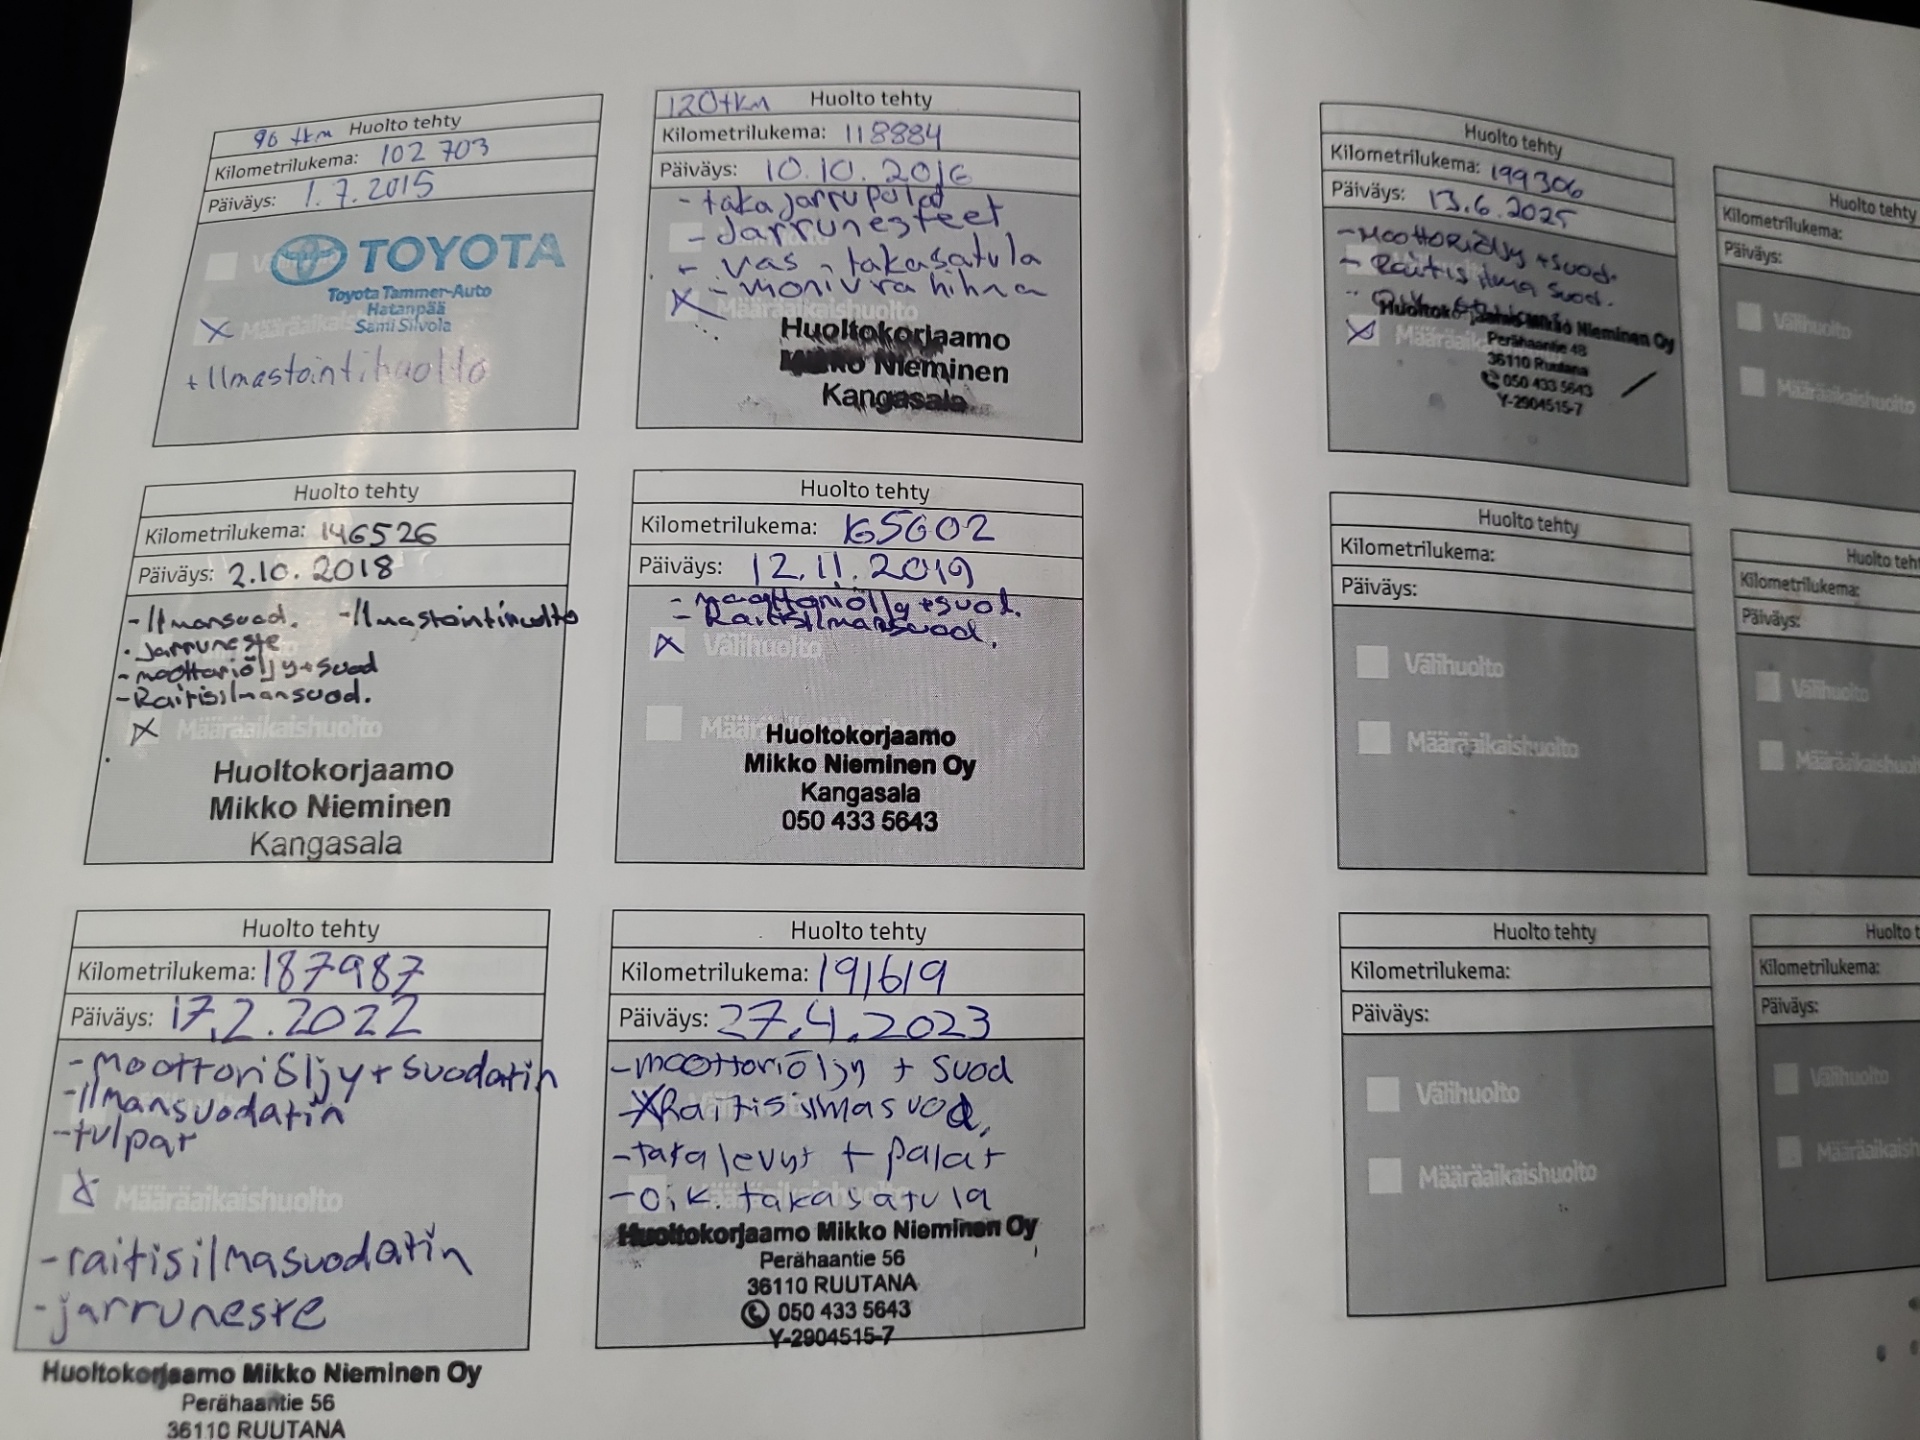 96 tkm Huolto tehty
Kilometrilukema: 102 703
Päiväys: 1.7.2015
TOYOTA
Toyota Tammer-Auto
Hatanpää
Sami Silvola
X Määräaikaishuolto
+ Ilmastointihuolto
120tkm Huolto tehty
Kilometrilukema: 118884
Päiväys: 10.10.2016
- takajarrupalat
- Jarrunesteet
- vas. takasatula
X - monivra hihna
Määräaikaishuolto
Huoltokorjaamo
Mikko Nieminen
Kangasala
Huolto tehty
Kilometrilukema: 146526
Päiväys: 2.10.2018
- Ilmansuod. - Ilmastointihuolto
- Jarruneste
- moottoriöljy + suod
- Raitisilmansuod.
X Määräaikaishuolto
Huoltokorjaamo
Mikko Nieminen
Kangasala
Huolto tehty
Kilometrilukema: 165602
Päiväys: 12.11.2019
- moottoriöljy + suod.
- Raitisilmansuod.
X Välihuolto
Huoltokorjaamo
Mikko Nieminen Oy
Kangasala
050 433 5643
Huolto tehty
Kilometrilukema: 187987
Päiväys: 17.2.2022
- moottoriöljy + suodatin
- Ilmansuodatin
- tulpat
X Määräaikaishuolto
- raitisilmasuodatin
- jarruneste
Huoltokorjaamo Mikko Nieminen Oy
Perähaantie 56
36110 RUUTANA
Huolto tehty
Kilometrilukema: 191619
Päiväys: 27.4.2023
- moottoriöljy + suod
- X Raitisilmasuod.
- takalevyt + palat
- oik. takasatula
Huoltokorjaamo Mikko Nieminen Oy
Perähaantie 56
36110 RUUTANA
050 433 5643
Y-2904515-7
Huolto tehty
Kilometrilukema: 199306
Päiväys: 13.6.2025
- Moottoriöljy + suod.
- Raitis ilma suod.
Mikko Nieminen Oy
X Määräaikaishuolto
Perähaantie 48
36110 Ruutana
050 433 5643
Y-2904515-7
Huolto tehty
Kilometrilukema:
Päiväys:
Välihuolto
Määräaikaishuolto
Huolto tehty
Kilometrilukema:
Päiväys:
Välihuolto
Määräaikaishuolto
Huolto teht
Kilometrilukema:
Päiväys:
Välihuolto
Määräaikaishuol
Huolto tehty
Kilometrilukema:
Päiväys:
Välihuolto
Määräaikaishuolto
Huolto t
Kilometrilukema:
Päiväys:
Välihuolto
Määräaikaish